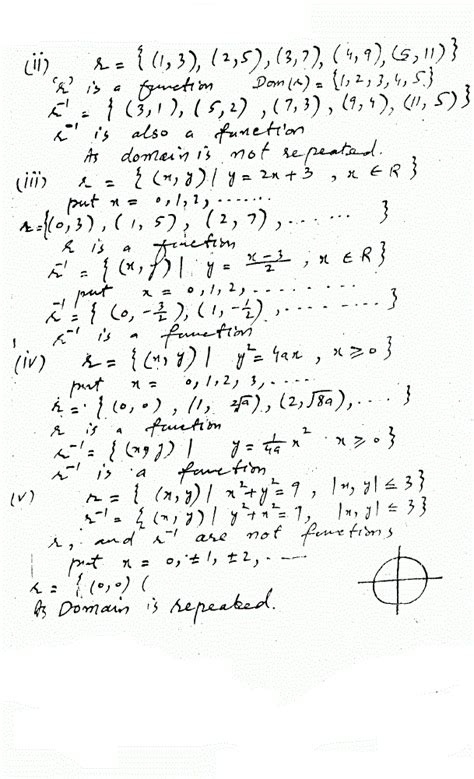 (ii) r = { (1, 3), (2, 5), (3, 7), (4, 9), (5, 11) }
'r' is a function Dom(r) = {1, 2, 3, 4, 5}
r⁻¹ = { (3, 1), (5, 2), (7, 3), (9, 4), (11, 5) }
r⁻¹ is also a function
As domain is not repeated.
(iii) r = { (x, y) | y = 2x + 3 , x ∈ R }
put x = 0, 1, 2, ......
r = {(0, 3), (1, 5), (2, 7), ...... }
r is a function
r⁻¹ = { (x, y) | y = (x-3)/2 , x ∈ R }
put x = 0, 1, 2, ........
r⁻¹ = { (0, -3/2), (1, -1/2), ........ }
r⁻¹ is a function
(iv) r = { (x, y) | y² = 4ax , x ≥ 0 }
put x = 0, 1, 2, 3, .....
r = { (0, 0) , (1, 2√a), (2, √8a), .... }
r is a function
r⁻¹ = { (x, y) | y = 1/4a x² x ≥ 0 }
r⁻¹ is a function
(v) r = { (x, y) | x² + y² = 9 , |x, y| ≤ 3 }
r⁻¹ = { (x, y) | y² + x² = 9, |x, y| ≤ 3 }
r, and r⁻¹ are not functions
put x = 0, ±1, ±2, ....
r = { (0, 0) (
As Domain is repeated.